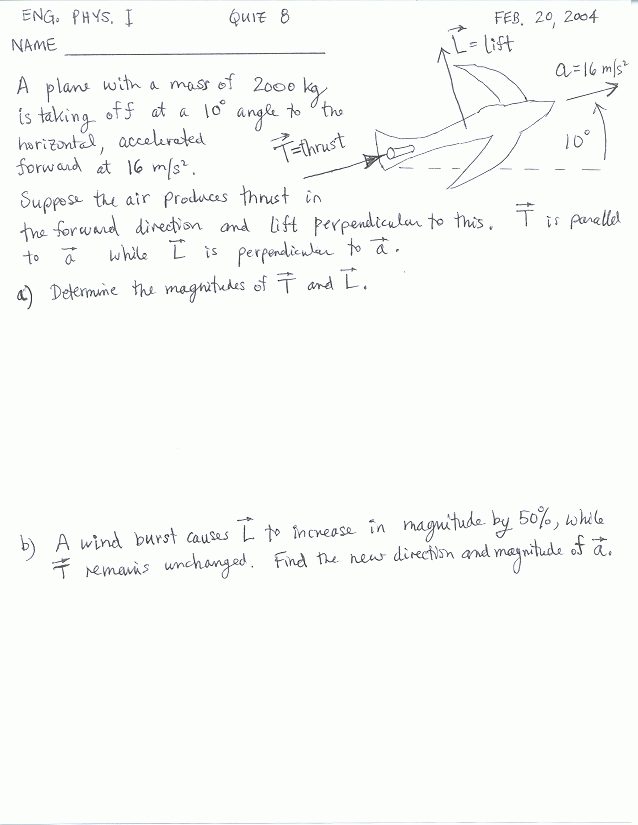 ENG. PHYS. I QUIZ 8 FEB. 20, 2004
NAME
L = lift
a=16 m/s²
A plane with a mass of 2000 kg
is taking off at a 10° angle to the
horizontal, accelerated
forward at 16 m/s².
T=thrust
10°
Suppose the air produces thrust in
the forward direction and lift perpendicular to this. T is parallel
to a while L is perpendicular to a.
a) Determine the magnitudes of T and L.
b) A wind burst causes L to increase in magnitude by 50%, while
T remains unchanged. Find the new direction and magnitude of a.